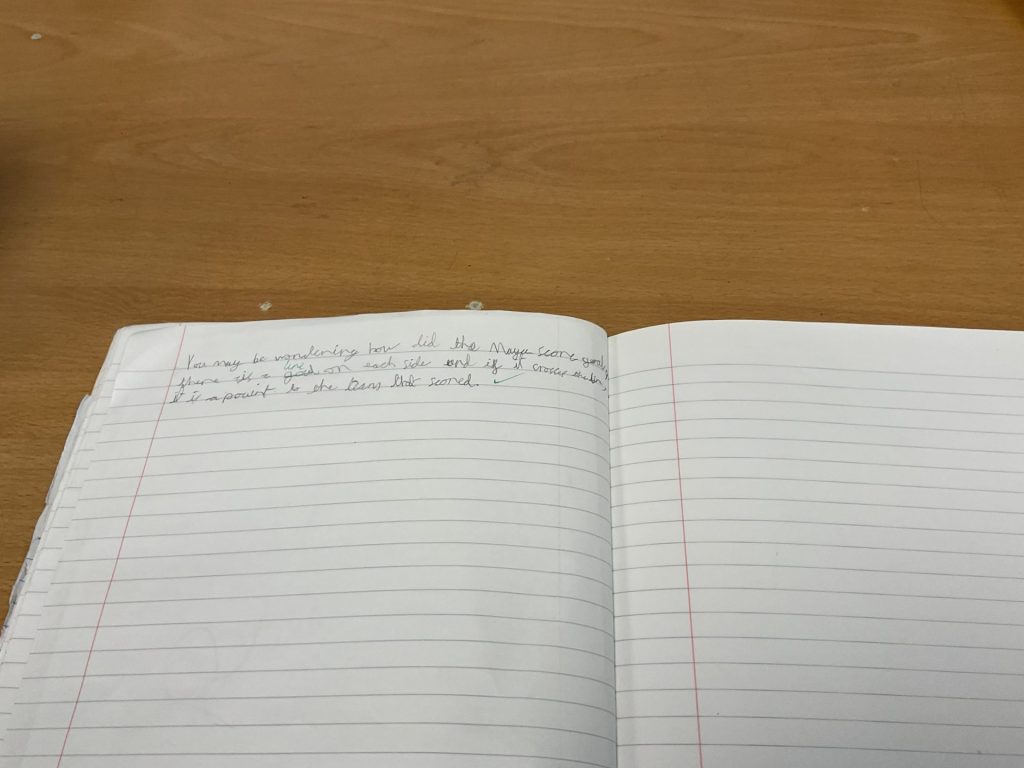 You may be wondering how did the Maya score
there is a line on each side and if it crosses the
it is a point to the team that scored.